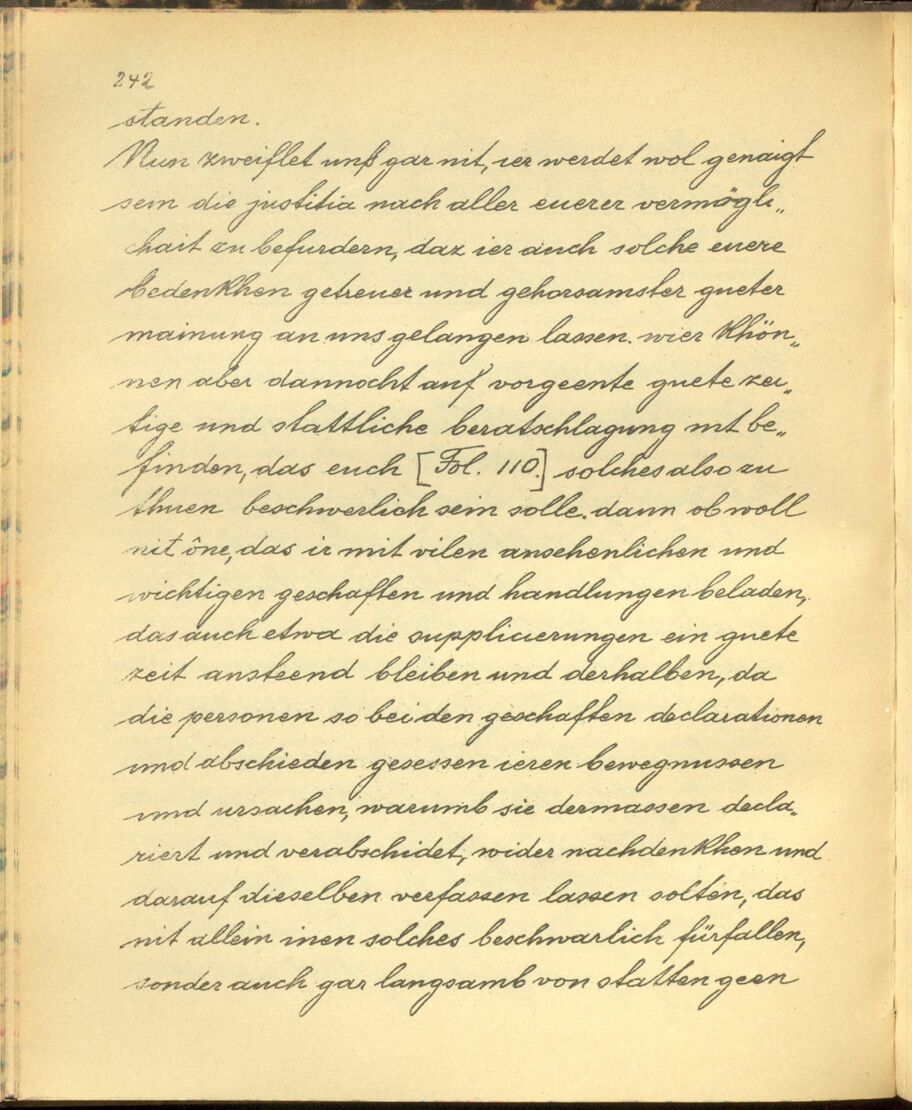 242
standen.
Nun zweiflet unß gar nit, ier werdet wol genaigt
sein die justitia nach aller euerer vermögli„
chait zu befurdern, daz ier auch solche euere
bedenkhen getreuer und gehorsamster gueter
mainung an uns gelangen lassen. wier khön„
nen aber dannocht auf vorgeente guete zei„
tige und stattliche beratschlagung nit be„
finden, das euch [Fol. 110.] solches also zu
thuen beschwerlich sein solle. dann ob woll
nit ône, das ir mit vilen ansehenlichen und
wichtigen geschaften und handlungen beladen,
das auch etwa die supplicierungen ein guete
zeit ansteend bleiben und derhalben, da
die personen so bei den geschaften declarationen
und abschieden gesessen ieren bewegnussen
und ursachen, warumb sie dermassen decla„
riert und verabschidet, wider nachdenkhen und
darauf dieselben verfassen lassen solten, das
nit allein inen solches beschwarlich fürfallen,
sonder auch gar langsamb von statten geen